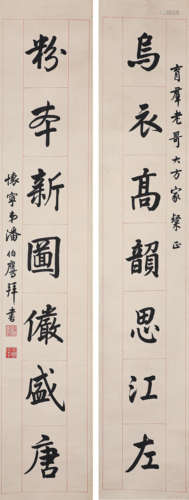 育群老哥大方家粲正
烏衣高韻思江左
粉本新圖儼盛唐
懷寧弟潘伯鷹拜書